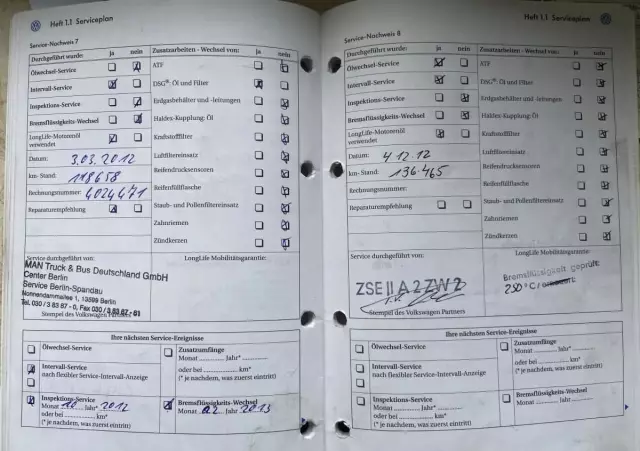 Heft 1.1 Serviceplan
Service-Nachweis 7
Durchgeführt wurde: ja nein
Ölwechsel-Service
Intervall-Service
Inspektions-Service
Bremsflüssigkeits-Wechsel
LongLife-Motorenöl
verwendet
Datum: 3.03.2012
km- Stand: 118658
Rechnungsnummer: 4024671
Reparaturempfehlung
Zusatzarbeiten - Wechsel von: ja nein
ATF
DSG®: Öl und Filter
Erdgasbehälter und -leitungen
Haldex-Kupplung: Öl
Kraftstofffilter
Luftfiltereinsatz
Reifendrucksensoren
Reifenfüllflasche
Staub- und Pollenfiltereinsatz
Zahnriemen
Zündkerzen
Service durchgeführt von:
LongLife Mobilitätsgarantie:
MAN Truck & Bus Deutschland GmbH
Center Berlin
Service Berlin-Spandau
Nonnendammallee 1, 13599 Berlin
Tel. 030 / 3 83 87 - 0, Fax 030 / 3 83 87 - 61
Stempel des Volkswagen Partners
Ihre nächsten Service-Ereignisse
Ölwechsel-Service
Intervall-Service
nach flexibler Service-Intervall-Anzeige
Inspektions-Service
Monat 10 Jahr* 2012
oder bei km*
(* je nachdem, was zuerst eintritt)
Zusatzumfänge
Monat Jahr*
oder bei km*
(* je nachdem, was zuerst eintritt)
Bremsflüssigkeits-Wechsel
Monat 02 Jahr 2013
Heft 1.1 Serviceplan
Service-Nachweis 8
Durchgeführt wurde: ja nein
Ölwechsel-Service
Intervall-Service
Inspektions-Service
Bremsflüssigkeits-Wechsel
LongLife-Motorenöl
verwendet
Datum: 4.12.12
km- Stand: 136.465
Rechnungsnummer:
Reparaturempfehlung
Zusatzarbeiten - Wechsel von: ja nein
ATF
DSG®: Öl und Filter
Erdgasbehälter und -leitungen
Haldex-Kupplung: Öl
Kraftstofffilter
Luftfiltereinsatz
Reifendrucksensoren
Reifenfüllflasche
Staub- und Pollenfiltereinsatz
Zahnriemen
Zündkerzen
Service durchgeführt von:
LongLife Mobilitätsgarantie:
ZSE II A 2 ZW 2
Stempel des Volkswagen Partners
Bremsflüssigkeit geprüft:
230 °C /
Ihre nächsten Service-Ereignisse
Ölwechsel-Service
Intervall-Service
nach flexibler Service-Intervall-Anzeige
Inspektions-Service
Monat Jahr*
oder bei km*
(* je nachdem, was zuerst eintritt)
Zusatzumfänge
Monat Jahr*
oder bei km*
(* je nachdem, was zuerst eintritt)
Bremsflüssigkeits-Wechsel
Monat Jahr